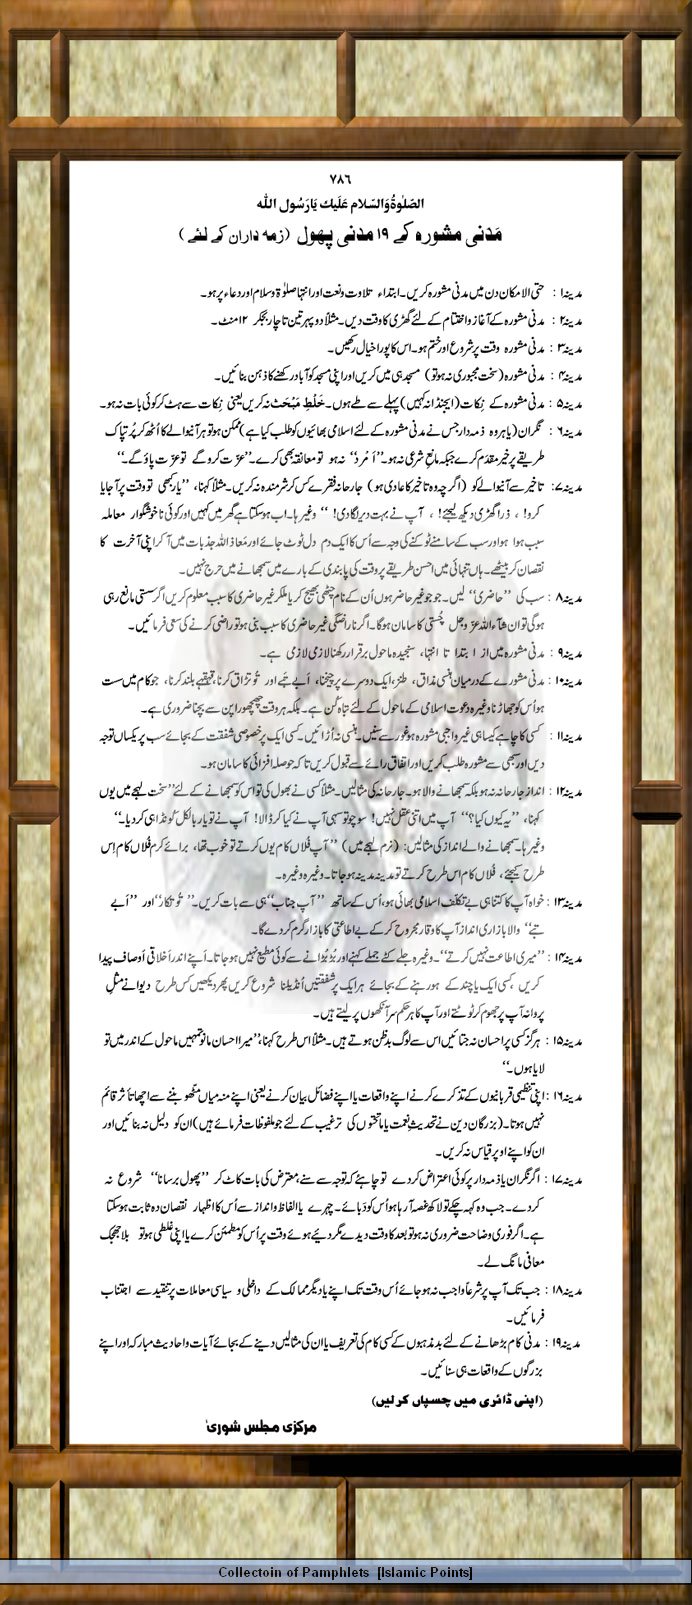 ۷۸۶
الصَّلٰوۃُ وَالسَّلام عَلَیْك یَارَسُول اللہ
مَدَنی مشورہ کے ۱۹ مدنی پھول (زمہ داران کے لئے)
مدینہ۱ : حتی الامکان دن میں مدنی مشورہ کریں۔ ابتداء تلاوت و نعت اور انتہا صلوٰۃ و سلام اور دعاء پر ہو۔
مدینہ۲ : مدنی مشورہ کے آغاز و اختتام کے لئے گھڑی کا وقت دیں۔ مثلاً دو پہر تین تا چار بجکر ۱۲ منٹ۔
مدینہ۳ : مدنی مشورہ وقت پر شروع اور ختم ہو۔ اس کا پورا خیال رکھیں۔
مدینہ۴ : مدنی مشورہ (سخت مجبوری نہ ہو تو) مسجد ہی میں کریں اور اپنی مسجد کو آباد رکھنے کا ذہن بنائیں۔
مدینہ۵ : مدنی مشورہ کے نِکات (ایجنڈا نہ کہیں) پہلے سے طے ہوں۔ خَلْطِ مَبْحَث نہ کریں یعنی نِکات سے ہٹ کر کوئی بات نہ ہو۔
مدینہ۶ : نگران (یا ہر وہ ذمہ دار جس نے مدنی مشورہ کے لئے اسلامی بھائیوں کو طلب کیا ہے) ممکن ہو تو ہر آنیوالے کا اُٹھ کر پُر تپاک
طریقے پر خیر مقدم کرے جبکہ مانعِ شرعی نہ ہو۔ ’’اَمْرَد‘‘ نہ ہو تو معانقہ بھی کرے۔ ’’عزت کرو گے تو عزت پاؤ گے۔‘‘
مدینہ۷ : تاخیر سے آنیوالے کو (اگرچہ وہ تاخیر کا عادی ہو) جارحانہ فقرے کس کر شرمندہ نہ کریں۔ مثلاً کہنا، ’’یار کبھی تو وقت پر آجایا
کرو!، ذرا گھڑی دیکھ لیجئے!، آپ نے بہت دیر لگا دی!‘‘ وغیرہا۔ اب ہو سکتا ہے گھر میں کہیں اور کوئی ناخوشگوار معاملہ
سبب ہوا ہو اور سب کے سامنے ٹوکنے کی وجہ سے اُس کا ایک دم دل ٹوٹ جائے اور مَعاذاللہ جذبات میں آکر اپنی آخرت کا
نقصان کر بیٹھے۔ ہاں تنہائی میں احسن طریقے پر وقت کی پابندی کے بارے میں سمجھانے میں حرج نہیں۔
مدینہ۸ : سب کی ’’حاضری‘‘ لیں۔ جو جو غیر حاضر ہوں اُن کے نام چٹھی بھیج کر یا ملکر غیر حاضری کا سبب معلوم کریں اگر سستی مانع رہی
ہوگی تو ان شآءاللہ عزوجل چُستی کا سامان ہوگا۔ اگر ناراضگی غیر حاضری کا سبب بنی ہو تو راضی کرنے کی سعی فرمائیں۔
مدینہ۹ : مدنی مشورہ میں از ابتدا تا انتہا، سنجیدہ ماحول برقرار رکھنا لازمی لازمی ہے۔
مدینہ۱۰ : مدنی مشورے کے درمیان ہنسی مذاق، طنز، ایک دوسرے پر چیخنا، اَبے تَبے اور تُو تڑاق کرنا، قہقہے بلند کرنا، جو کام میں سست
ہو اُس کو جھاڑنا وغیرہ دعوت اسلامی کے ماحول کے لئے تباہ کُن ہے۔ بلکہ ہر وقت چھچھورا پن سے بچنا ضروری ہے۔
مدینہ۱۱ : کسی کا چاہے کیسا ہی غیر واجبی مشورہ ہو غور سے سنیں۔ ہنسی نہ اُڑائیں۔ کسی ایک پر خصوصی شفقت کے بجائے سب پر یکساں توجہ
دیں اور سبھی سے مشورہ طلب کریں اور اتفاق رائے سے قبول کریں تاکہ حوصلہ افزائی کا سامان ہو۔
مدینہ۱۲ : انداز جارحانہ نہ ہو بلکہ سمجھانے والا ہو۔ جارحانہ کی مثالیں۔ مثلاً کسی نے بھول کی تو اس کو سمجھانے کے لئے ’’سخت لہجے میں یوں
کہنا، ’’یہ کیوں کیا؟‘‘ آپ میں اتنی عقل نہیں! سوچو تو سہی آپ نے کیا کر ڈالا! آپ نے تو یار بالکل گونڈا ہی کر دیا۔‘‘
وغیرہا۔ سمجھانے والے انداز کی مثالیں: (نرم لہجے میں) ’’آپ فُلاں کام یوں کرتے تو خوب تھا، برائے کرم فلاں کام اِس
طرح کیجئے، فُلاں کام اس طرح کرتے تو مدینہ مدینہ ہو جاتا۔ وغیرہ وغیرہ۔
مدینہ۱۳ : خواہ آپ کا کتنا ہی بے تکلف اسلامی بھائی ہو، اُس کے ساتھ ’’آپ جناب‘‘ ہی سے بات کریں۔ ’’تُو تکار‘‘ اور ’’اَبے
تبے‘‘ والا بازاری انداز آپ کا وقار مجروح کر کے بے اطاعتی کا بازار گرم کر دے گا۔
مدینہ۱۴ : ’’میری اطاعت نہیں کرتے‘‘۔ وغیرہ جلے کٹے جملے کہنے اور بُڑبُڑانے سے کوئی مطیع نہیں ہو جاتا۔ اَپنے اندر اَخلاقی اَوصاف پیدا
کریں کسی ایک یا چند کے ہو رہنے کے بجائے ہر ایک پر شفقتیں اُنڈیلنا شروع کریں پھر دیکھیں کس طرح دیوانے مثلِ
پروانہ آپ پر جھوم کر ٹوٹتے اور آپ کا ہر حکم سر آنکھوں پر لیتے ہیں۔
مدینہ۱۵ : ہرگز کسی پر احسان نہ جتائیں اس سے لوگ بدظن ہوتے ہیں۔ مثلاً اس طرح کہنا، ’’میرا احسان مانو تمہیں ماحول کے اندر میں تو
لایا ہوں۔‘‘
مدینہ۱۶ : اپنی تنظیمی قربانیوں کے تذکرے کرنے اپنے واقعات یا اپنے فضائل بیان کرنے یعنی اپنے منہ میاں مٹھو بننے سے اچھا تأثر قائم
نہیں ہوتا۔ (بزرگان دین نے تحدیثِ نعمت یا ماتحتوں کی ترغیب کے لئے جو ملفوظات فرمائے ہیں) ان کو دلیل نہ بنائیں اور
ان کو اپنے اوپر قیاس نہ کریں۔
مدینہ۱۷ : اگر نگران یا ذمہ دار پر کوئی اعتراض کر دے تو چاہئے کہ توجہ سے سنے، معترض کی بات کاٹ کر ’’پھول برسانا‘‘ شروع نہ
کر دے۔ جب وہ کہہ چکے تو لاکھ غصہ آرہا ہو اُس کو دَبائے۔ چہرے یا الفاظ و انداز سے اُس کا اظہار نقصان دہ ثابت ہو سکتا
ہے۔ اگر فوری وضاحت ضروری نہ ہو تو بعد کا وقت دیدے مگر دئیے ہوئے وقت پر اُس کو مطمئن کرے یا اپنی غلطی ہو تو بلا جھجک
معافی مانگ لے۔
مدینہ۱۸ : جب تک آپ پر شرعاً واجب نہ ہو جائے اُس وقت تک اپنے یا دیگر ممالک کے داخلی و سیاسی معاملات پر تنقید سے اجتناب
فرمائیں۔
مدینہ۱۹ : مدنی کام بڑھانے کے لئے بدمذہبوں کے کسی کام کی تعریف یا ان کی مثالیں دینے کے بجائے آیات و احادیث مبارکہ اور اپنے
بزرگوں کے واقعات ہی سنائیں۔
(اپنی ڈائری میں چسپاں کر لیں)
مرکزی مجلس شوریٰ
Collectoin of Pamphlets [Islamic Points]